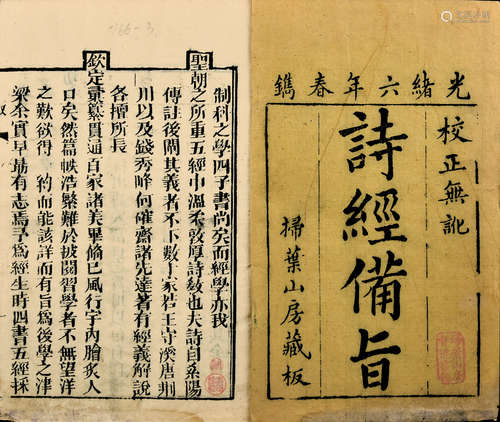 光緒六年春鐫
校正無訛
詩經備旨
掃葉山房藏板
制科之學四子書尚矣而經學亦我
聖朝之所重五經中溫柔敦厚詩教也夫詩自紫陽
傳註後闡其義者不下數十家若王守溪唐荆
川以及錢秀峰何確齋諸先達著有經義解說
各擅所長
欽定彙纂貫通百家諸美畢備已風行宇內膾炙人
口矣然篇帙浩繁難於披閱習學者不無望洋
之歎欲得約而能該詳而有旨為後學之津
梁余實早勗有志焉予為經生時四書五經採
166-3